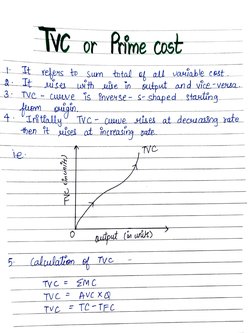 TVC or Prime cost
1. It refers to sum total of all variable cost.
2. It rises with rise in output and vice-versa.
3. TVC - curve is inverse-s-shaped starting
from origin.
4. Initially TVC - curve rises at decreasing rate
then it rises at increasing rate.
ie.
TVC
TVC (in units)
0
output (in units)
5. Calculation of TVC -
TVC = ΣMC
TVC = AVC×Q
TVC = TC-TFC